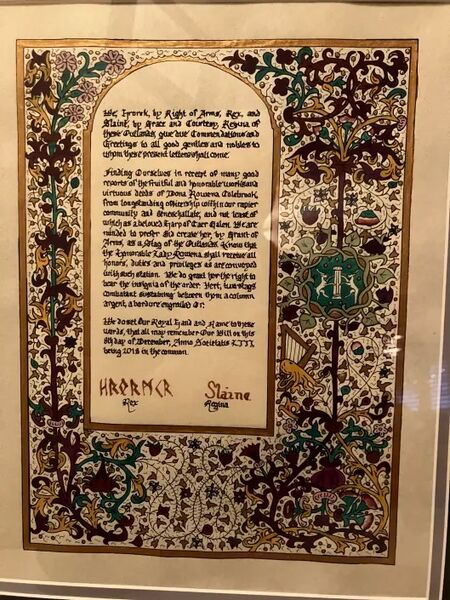 We, Hrorek, by Right of Arms, Rex, and
Slaine, by Grace and Courtesy, Regina of
these Outlands, give due Commendations and
Greetings to all good gentles and nobles to
whom these present letters shall come.
Finding Ourselves in receipt of many good
reports of the fruitful and honorable works and
virtuous deeds of Dona Rowena
from longstanding officership within our rapier
community and Seneschallate, and not least of
which as a beloved Harp of Caer Galen. We are
minded to press did create her, by Grant of
Arms, as a Stag of the Outlands. Know that
the Honorable Lady Rowena shall receive all
honors, duties and privileges as are conveyed
with such station. We do grant her the right to
bear the insignia of the order: Vert, two stags
combatant sustaining between them a column
argent, a bordure engrailed Or.
We do set Our Royal Hand and Name to these
words, that all may remember Our Will on this
8th day of December, Anno Societatis LIII,
being 2018 in the common.
Slaine
Rex
Regina